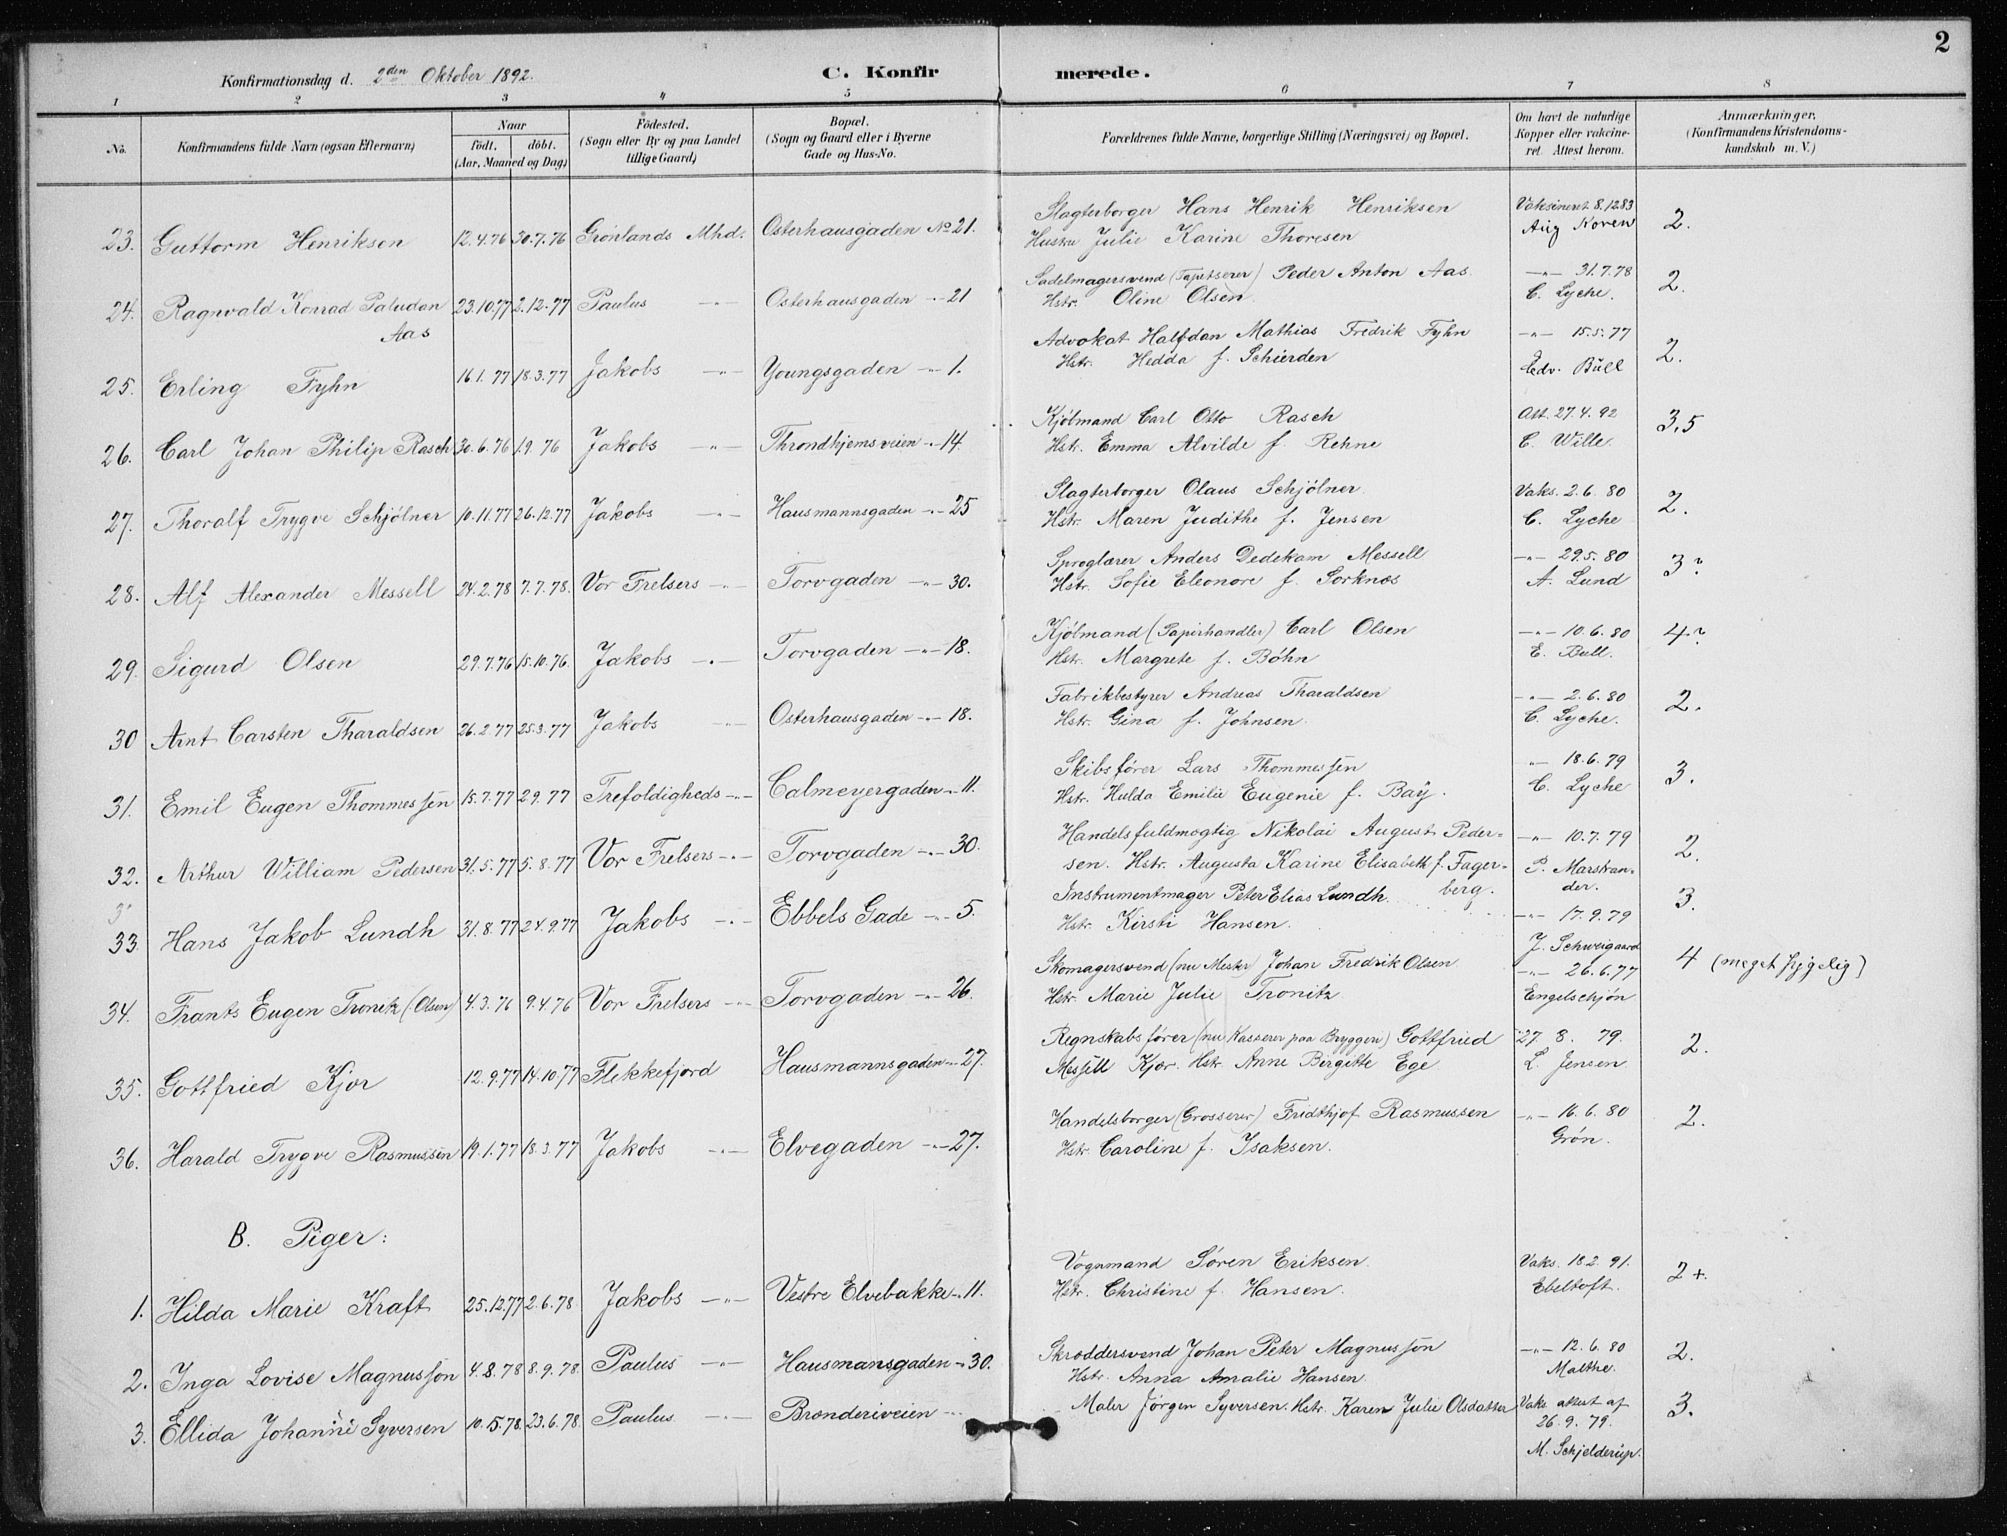 2
Konfirmationsdag d. 2den Oktober 1892.
C. Konfirmerede.
1 2 3 4 5 6 7 8
No.
Konfirmandens fulde Navn (ogsaa Efternavn)
Naar
födt. döbt.
(Aar, Maaned og Dag)
Födested.
(Sogn eller By og paa Landet
tillige Gaard)
Bopæl.
(Sogn og Gaard eller i Byerne
Gade og Hus-No.
Forældrenes fulde Navne, borgerlige Stilling (Næringsvei) og Bopæl.
Om havt de naturlige
Kopper eller vakcine-
ret. Attest herom.
Anmærkninger.
(Konfirmandens Kristendoms-
kundskab m. V.)
23. Guttorm Henriksen 12.4.76 30.7.76 Grønlands Mhd. Osterhausgaden No 21.
Slagterborger Hans Henrik Henriksen Vaksineret 8.12 83 2.
Hustru Julie Karine Thoresen Aug Koren
24. Ragnvald Konrad Paludan 23.10.77 2.12.77 Paulus -"- Osterhausgaden -"- 21
Aas
Sadelmagersvend (Tapetserer) Peder Anton Aas. -"- 31.7.78 2.
Hstr. Oline Olsen. C. Lyche.
25. Erling Fyhn 16.1.77 18.3.77 Jakobs -"- Youngsgaden -"- 1.
Advokat Halfdan Mathias Fredrik Fyhn -"- 15.5.77 2.
Hstr. Hedda f. Schierden Edv. Bull
26. Carl Johan Philip Rasch 30.6.76 1.9.76 Jakobs -"- Throndhjemsveien -"- 14.
Kjøbmand Carl Otto Rasch Att. 27.4.92 3,5
Hstr. Emma Alvilde f. Rehne C. Wille
27. Thoralf Trygve Schjølner 10.11.77 26.12.77 Jakobs -"- Hausmannsgaden -"- 25
Slagterborger Olaus Schjølner. Vaks. 2.6.80 2.
Hstr. Maren Judithe f. Jensen C. Lyche
28. Alf Alexander Messell 24.2.78 7.7.78. Vor Frelsers -"- Torvgaden -"- 30.
Sproglærer Anders Dedekam Messell -"- 29.5.80 3?
Hstr. Sofie Eleonore f. Sorknæs A. Lund
29. Sigurd Olsen 29.7.76 15.10.76. Jakobs -"- Torvgaden -"- 18.
Kjøbmand (Papirhandler) Carl Olsen -"- 10.6.80 4?
Hstr. Margrete f. Bøhn E. Bull.
30 Arnt Carsten Tharaldsen 26.2.77 25.3.77 Jakobs -"- Osterhausgaden -"- 18.
Fabrikbestyrer Andreas Tharaldsen -"- 2.6.80 2.
Hstr. Gina f. Johnsen. C. Lyche.
31. Emil Eugen Thommessen 15.7.77 2.9.77 Trefoldigheds -"- Calmeyergaden -"- 11.
Skibsfører Lars Thommessen -"- 18.6.79 3.
Hstr. Hulda Emilie Eugenie f. Baÿ. C. Lyche
32. Arthur William Pedersen 31.5.77 5.8.77 Vor Frelsers -"- Torvgaden -"- 30.
Handelsfuldmægtig Nikolai August Peder- -"- 10.7.79 2.
sen. Hstr. Augusta Karine Elisabeth f. Fager- P. Marstran-
berg. der.
33. Hans Jakob Lundh 31.8.77 24.9.77 Jakobs -"- Ebbels Gade -"- 5.
Instrumentmager Peter Elias Lundh. 3.
Hstr. Kirsti Hansen. -"- 17.9.79
J. Schweigaard
34. Frants Eugen Tronitz (Olsen) 4.3.76 9.4.76 Vor Frelsers -"- Torvgaden -"- 26.
Skomagersvend (nu Mester Johan Fredrik Olsen -"- 26.6.77 4 (meget sygelig)
Hstr. Marie Julie Tronitz Engelschjøn
35. Gottfried Kjær 12.9.77 14.10.77 Flekkefjord Hausmannsgaden -"- 27.
Regnskabsfører (nu Kasserer paa Bryggeri) Gottfried 27 8. 79. 2.
Messell Kjær. Hstr. Anne Birgitte Ege L. Jensen
36. Harald Trygve Rasmussen 19.1.77 18.3.77 Jakobs -"- Elvegaden -"- 27.
Handelsborger (Grosserer) Fridthjof Rasmussen -"- 16.6.80 2.
Hstr. Caroline f. Isaksen. Grøn.
B. Piger:
1. Hilda Marie Kraft 25.12.77 2.6.78 Jakobs -"- Vestre Elvebakke -"- 11.
Vognmand Søren Eriksen. Vaks. 18.2.91. 2+.
Hstr. Christine f. Hansen. Ebeltoft.
2. Inga Lovise Magnusson 4.8.78 8.9.78. Paulus -"- Hausmansgaden -"- 30.
Skræddersvend Johan Peter Magnusson -"- 12.6.80 2.
Hstr. Anna Amalie Hansen. Malthe.
3. Ellida Johanne Syversen 10.5.78. 23.6.78. Paulus -"- Brænderiveien -"-
Maler Jørgen Syversen. Hstr. Karen Julie Olsdatter Vaks. attest af 3.
26.9.79.
M. Schjelderup.